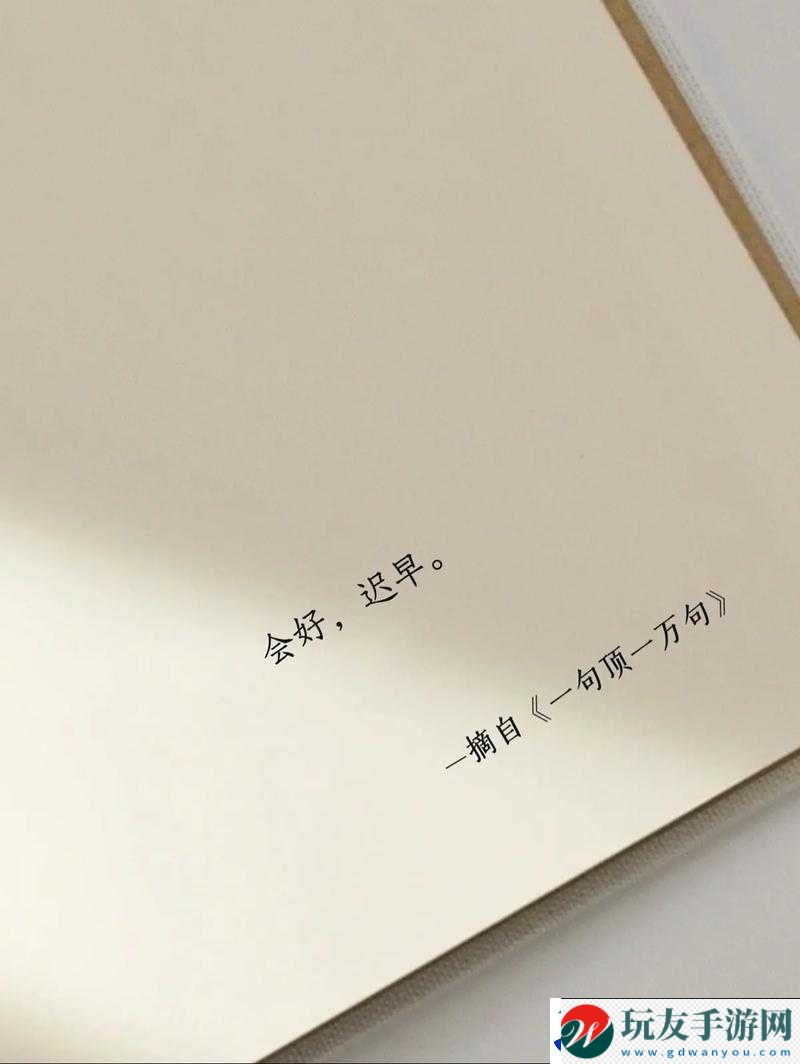 会好，迟早。
—摘自《一句顶一万句》
玩友手游网
www.gdwanyou.com